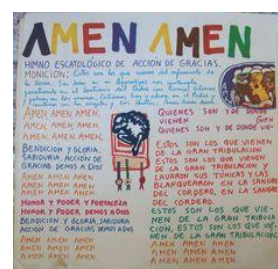 AMEN AMEN
HIMNO ESCATOLÓGICO DE ACCIÓN DE GRACIAS.
MONICION: Estos son los que vienen del
AMEN, AMEN, AMEN,
AMEN, AMEN, AMEN.
AMEN, AMEN, AMEN,
BENDICION Y GLORIA,
SABIDURIA, ACCION DE
GRACIAS DEMOS A DIOS
AMEN AMEN AMEN
AMEN AMEN AMEN
AMEN AMEN AMEN
HONOR Y PODER Y FORTALEZA
HONOR Y PODER, DEMOS A DIOS
BENDICION Y GLORIA, SABIDURIA
ACCION DE GRACIAS DEMOS A DIOS
AMEN AMEN AMEN
AMEN AMEN AMEN
AMEN AMEN AMEN
QUIENES SON Y DE DONDE
VIENEN
QUIENES SON Y DE DONDE
ESTOS SON LOS QUE VIENEN
DE LA GRAN TRIBULACION
ESTOS SON LOS QUE VIENEN
DE LA GRAN TRIBULACION Y
LAVARON SUS TÚNICAS Y LAS
BLANQUEARON EN LA SANGRE
DEL CORDERO, EN LA SANGRE
DEL CORDERO.
ESTOS SON LOS QUE VIE-
NEN DE LA GRAN TRIBULA
CION, ESTOS SON LOS QUE VIE-
NEN DE LA GRAN TRIBULACION.
AMEN AMEN AMEN
AMEN AMEN AMEN
AMEN AMEN AMEN